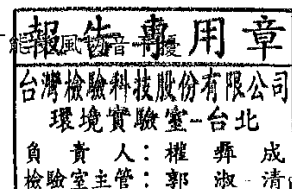 報告專用章
台灣檢驗科技股份有限公司
環境實驗室-台北
負責人：權彝成
檢驗室主管：郭淑清